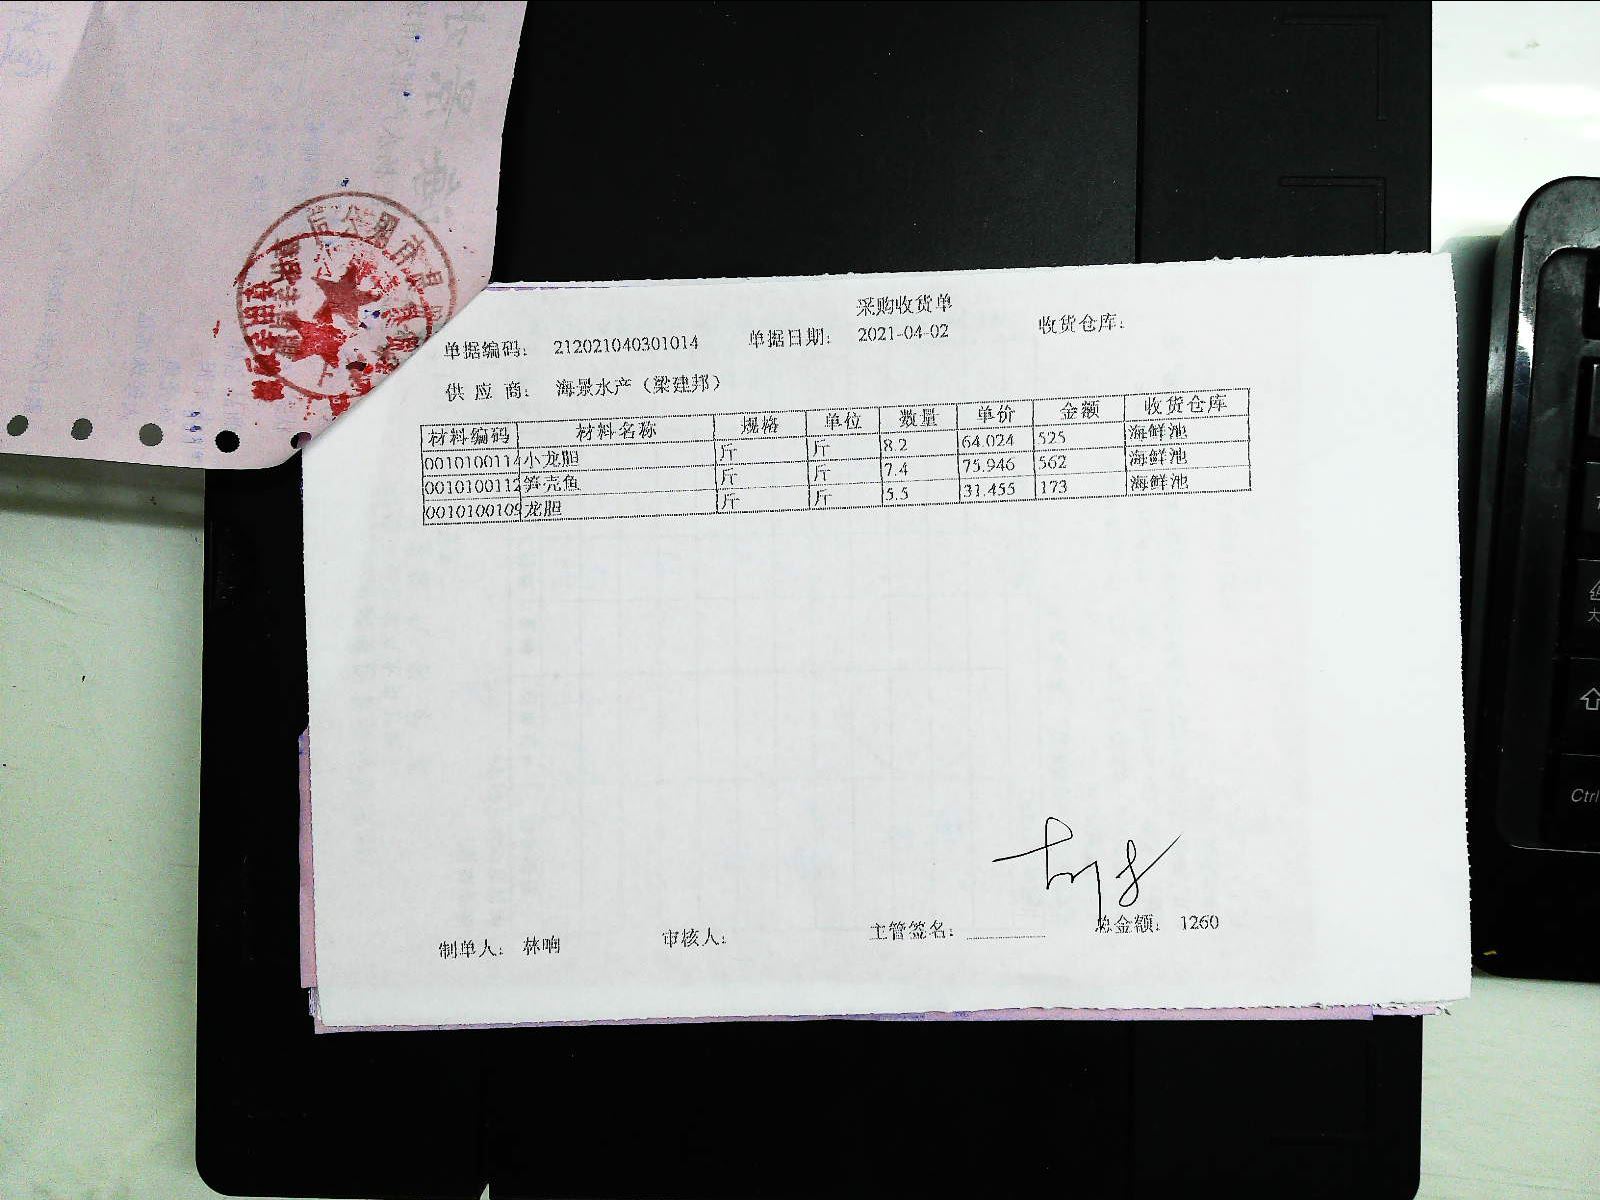 采购收货单
单据编码： 212021040301014 单据日期： 2021-04-02 收货仓库：
供 应 商： 海景水产（梁建邦）
材料编码 材料名称 规格 单位 数量 单价 金额 收货仓库
0010100114 小龙胆 斤 斤 8.2 64.024 525 海鲜池
0010100112 笋壳鱼 斤 斤 7.4 75.946 562 海鲜池
0010100109 龙胆 斤 斤 5.5 31.455 173 海鲜池
制单人： 林响 审核人： 主管签名： 总金额： 1260
Ctrl